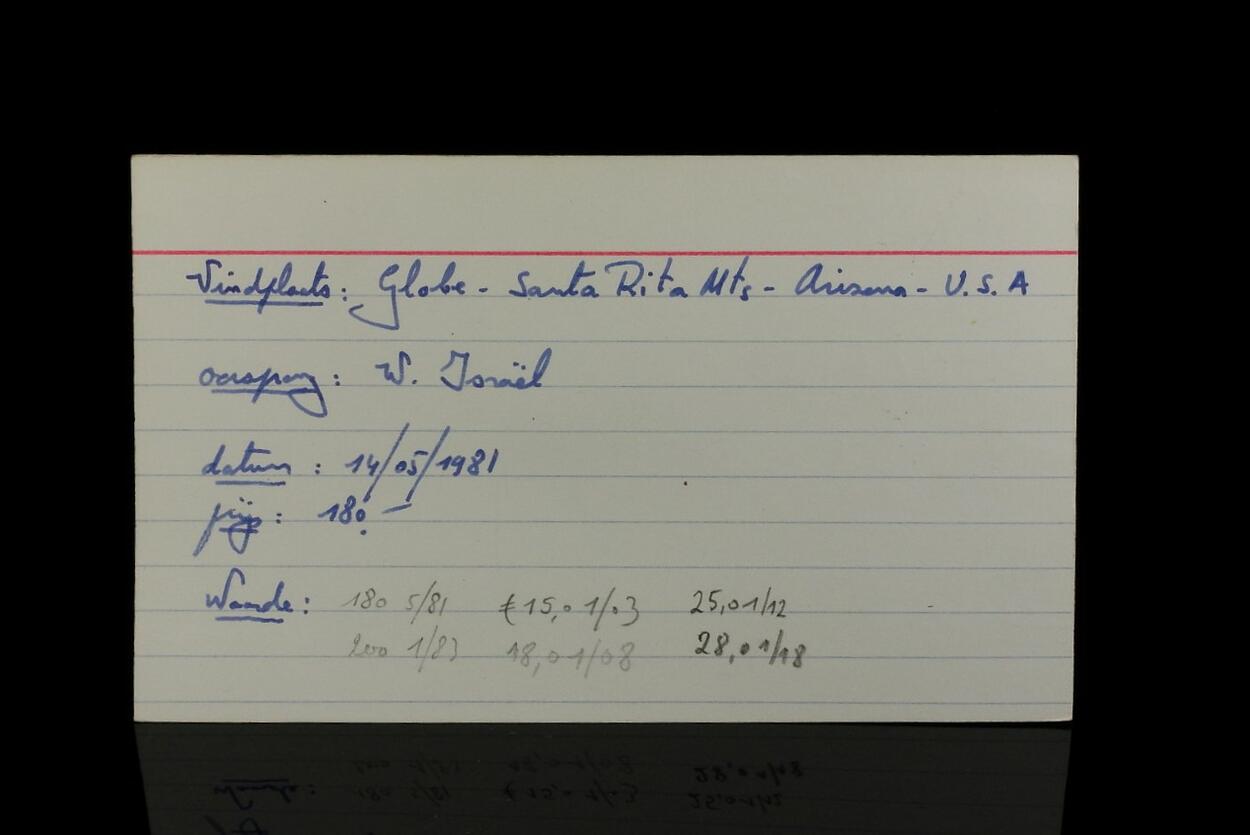 Vindplaats: Globe - Santa Rita Mts - Arizona - U.S.A
oorsprong: W. Israël
datum : 14/05/1981
prijs : 180,-
Waarde: 180 5/81 €15,0 1/03 25,0 1/12
200 1/83 18,0 1/08 28,0 1/18